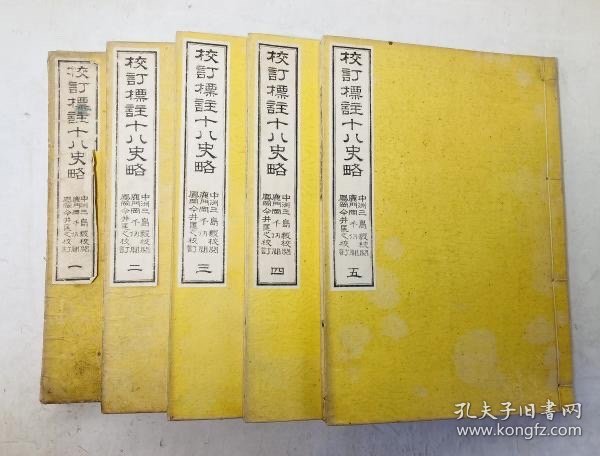 校訂標註十八史略
中洲三島毅校閲
鹿門岡千仭校閲
鳳岡今井匡之校訂
一
校訂標註十八史略
中洲三島毅校閲
鹿門岡千仭校閲
鳳岡今井匡之校訂
二
校訂標註十八史略
中洲三島毅校閲
鹿門岡千仭校閲
鳳岡今井匡之校訂
三
校訂標註十八史略
中洲三島毅校閲
鹿門岡千仭校閲
鳳岡今井匡之校訂
四
校訂標註十八史略
中洲三島毅校閲
鹿門岡千仭校閲
鳳岡今井匡之校訂
五
孔夫子旧书网
www.kongfz.com